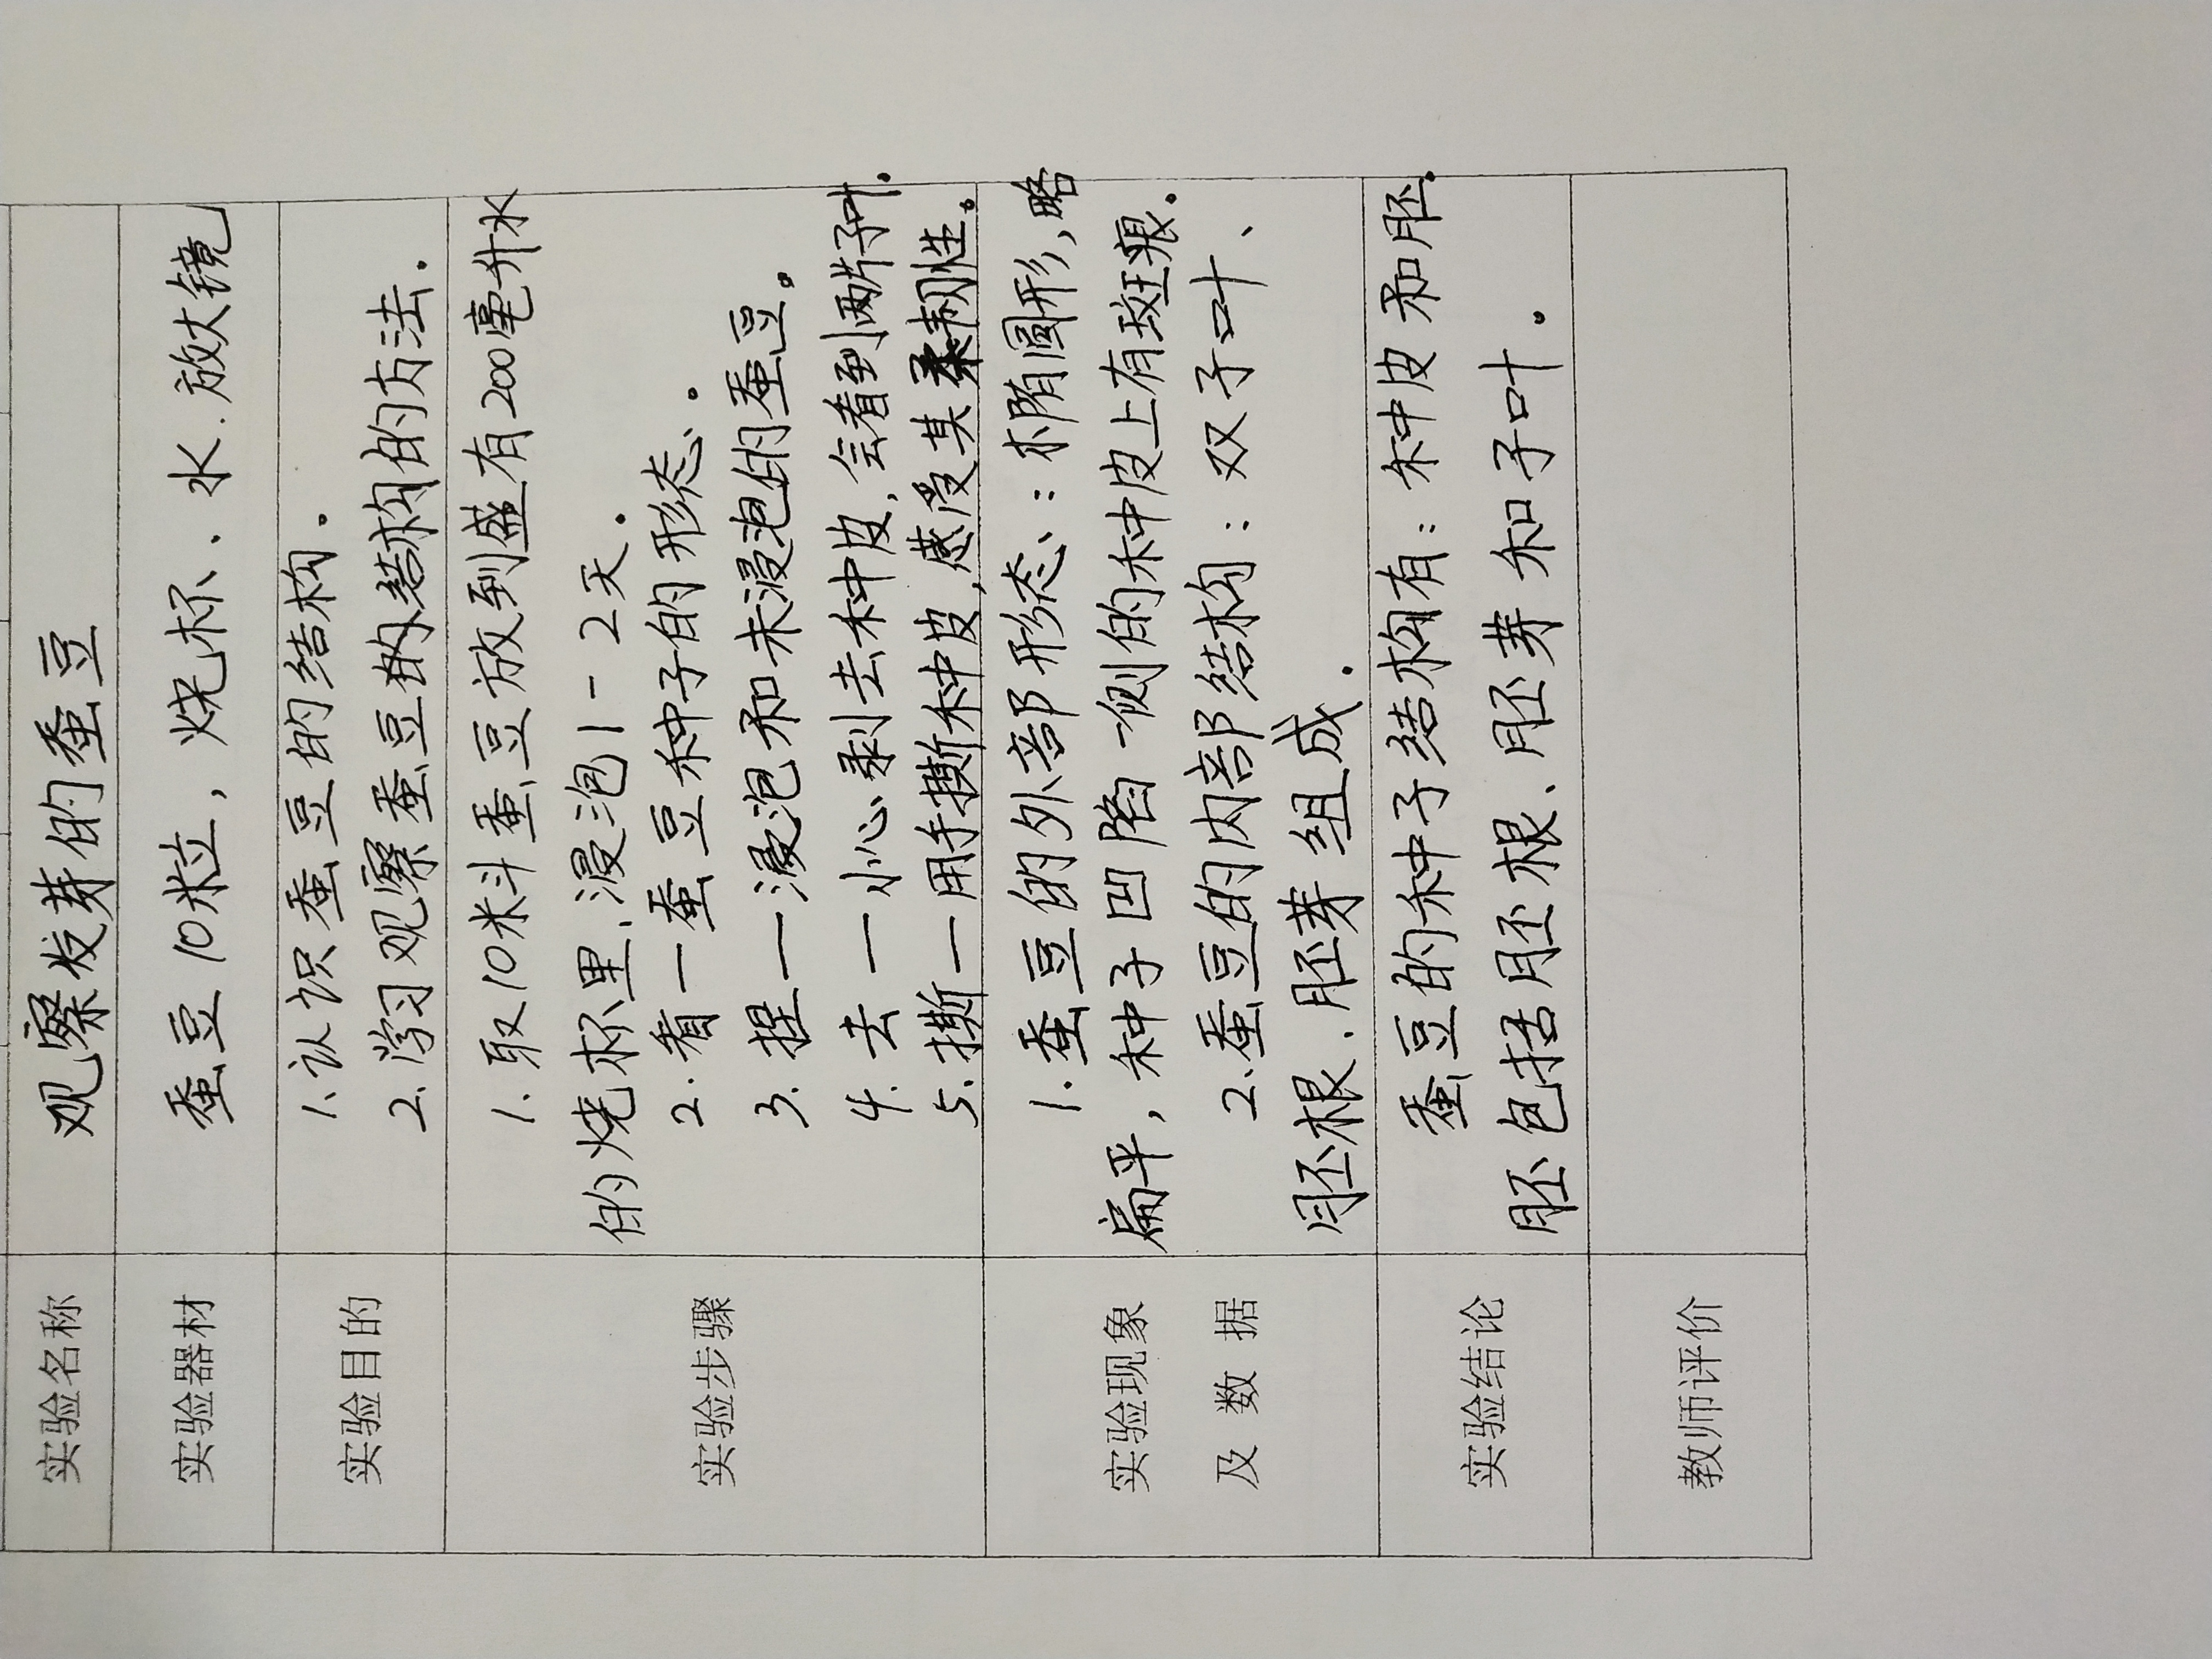 实验名称 观察发芽的蚕豆
实验器材 蚕豆10粒，烧杯、水.放大镜
实验目的 1.认识蚕豆的结构.
2.学习观察蚕豆的结构的方法.
实验步骤 1.取10米斗蚕豆放到盛有200毫升水
的烧杯里,浸泡1-2天.
2.看一蚕豆种子的形态.
3.捏一浸泡和未浸泡的蚕豆。
4.去一小心剥去种皮,会看到两片子叶.
5.撕一用手撕种皮,感受其柔韧性。
实验现象
及数据
1.蚕豆的外部形态:椭圆形,略
扁平，种子凹陷一侧的种皮上有斑痕.
2.蚕豆的内部结构:双子叶、
胚根.胚芽组成.
实验结论 蚕豆的种子结构有:种皮和胚.
胚包括胚根、胚芽和子叶.
教师评价